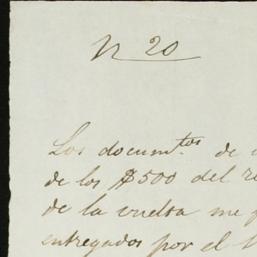 N 20
Los documtos de
de los $500 del
de la vuelta me
entregados por el